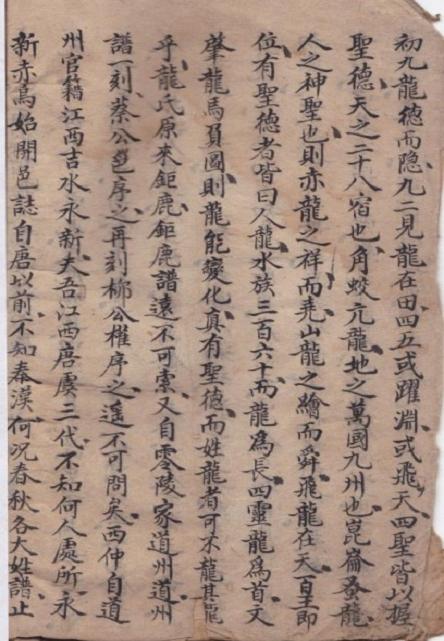 初九龍德而隐九二見龍在田四五或躍淵或飛天四聖皆以握
聖德天之二十八宿也角蛟亢龍地之萬國九州也崑崙蚤龍
人之神聖也則赤龍之祥而尭山龍之繪而舜飛龍在天皇即
位有聖德者皆曰人龍水族三百六十而龍爲長四靈龍爲首文
肇龍馬負圖則龍能變化真有聖德而姓龍者可不龍其龍
乎龍氏原來鉅鹿鉅鹿譜遠不可索又自零陵家道州道州
譜一刻蔡公邕序之再刻柳公權序之遥不可問矣西仲自道
州官籍江西吉水永新夫吾江西唐虞三代不知何人處所永
新赤烏始開邑誌自唐以前不知秦漢何况春秋各大姓譜止